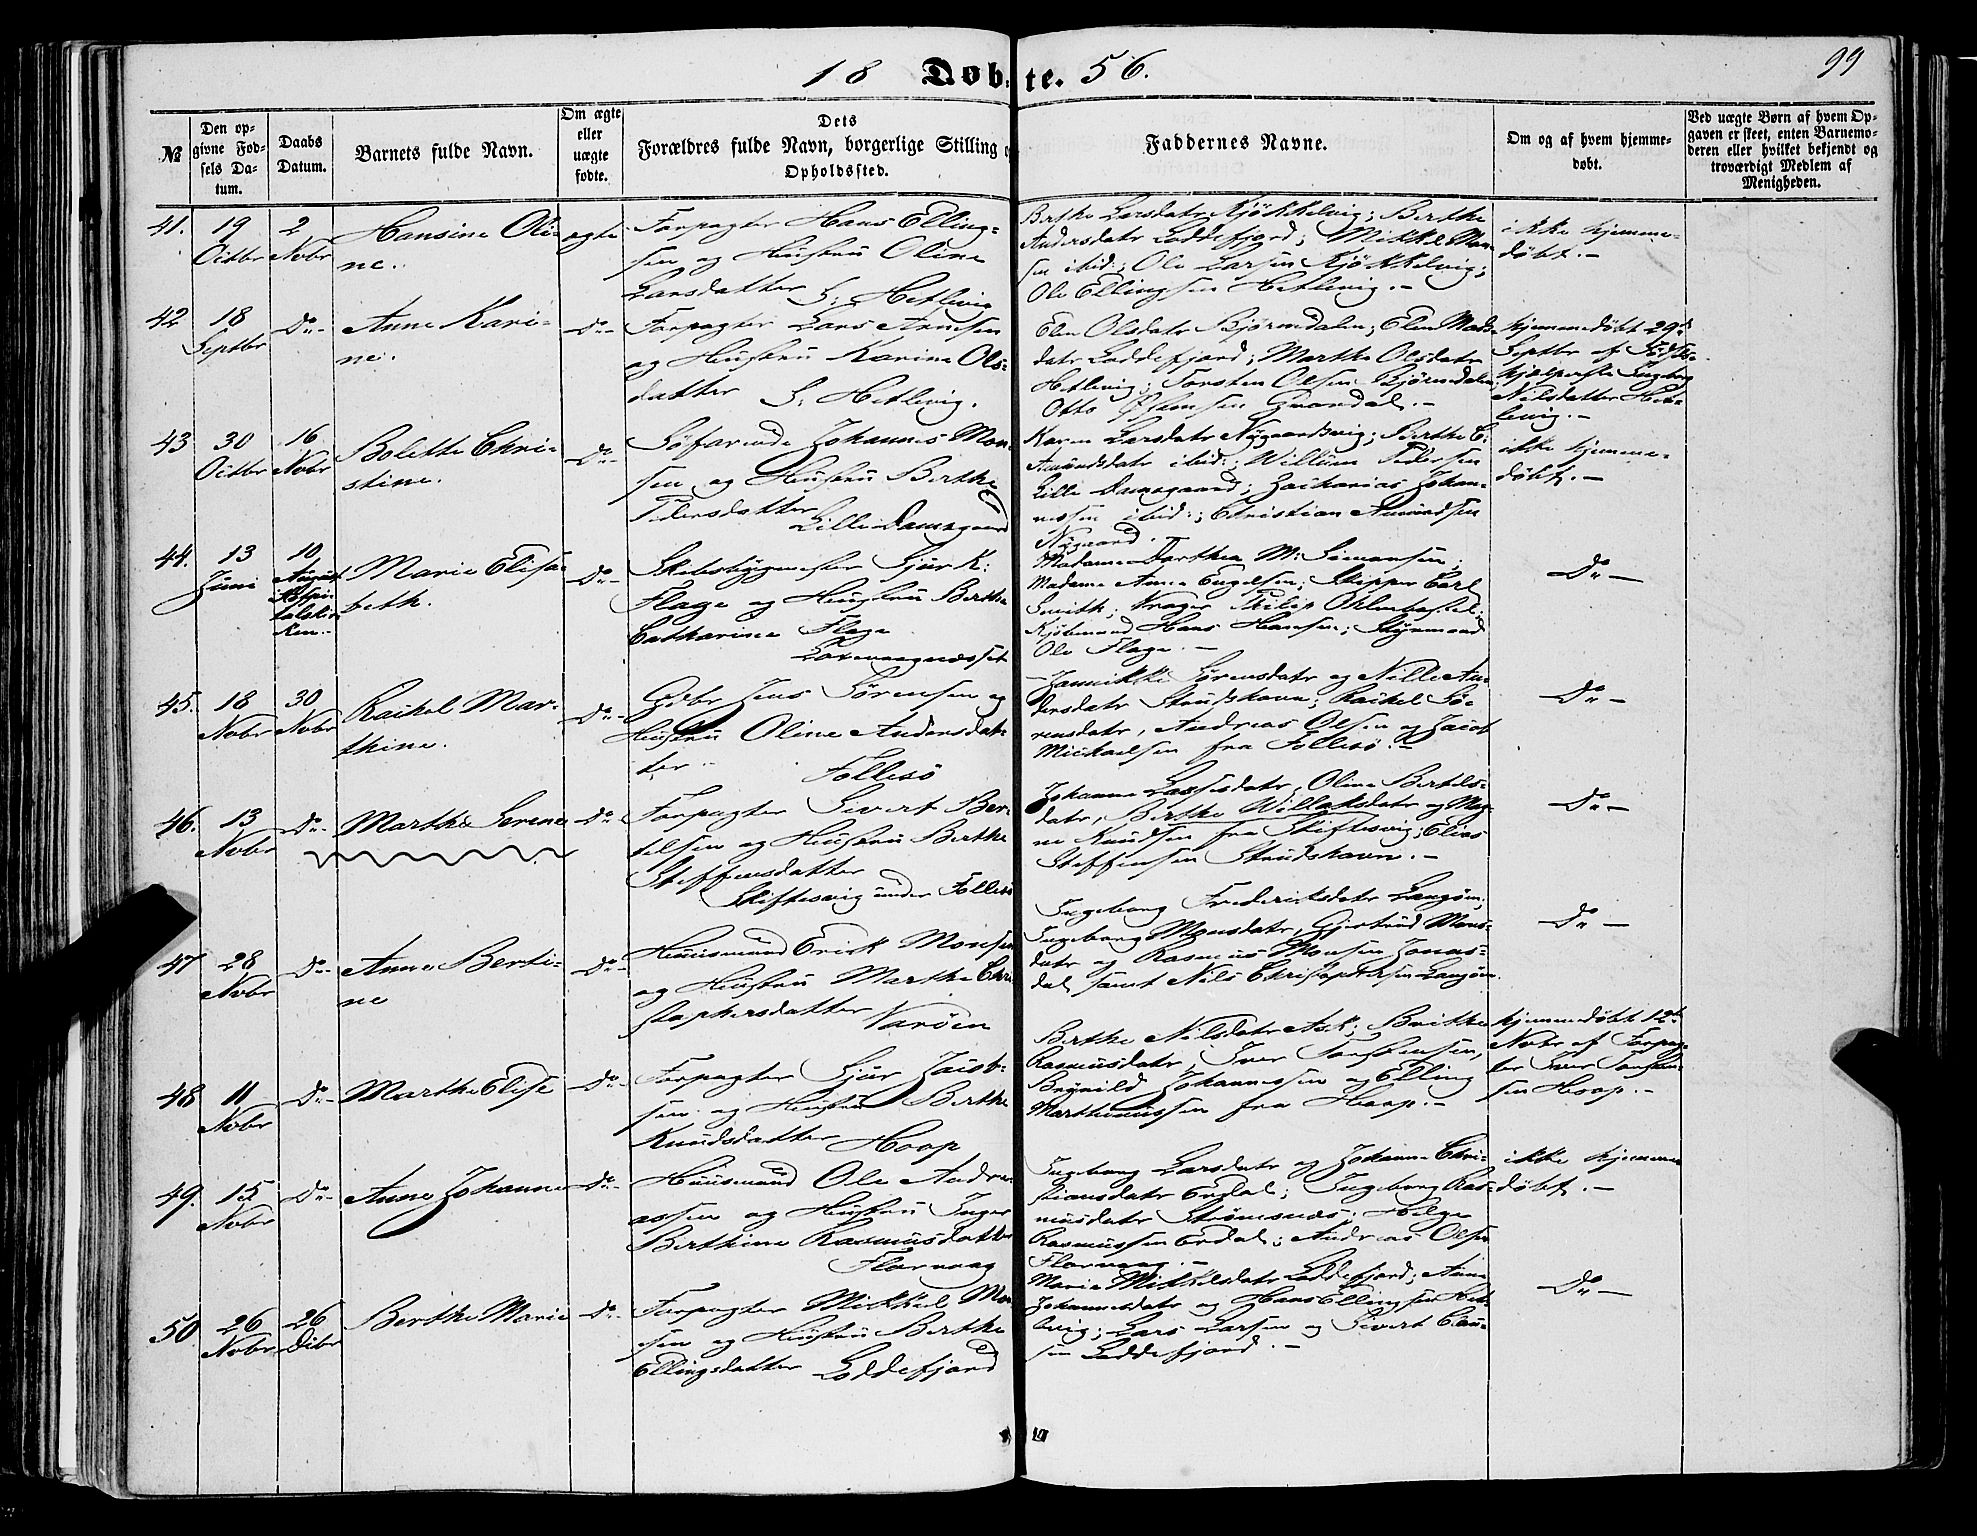 18 Døbte. 56.
99
№
Den op-
givne Fød-
sels Da-
tum.
Daabs
Datum.
Barnets fulde Navn.
Om ægte
eller
uægte
fødte.
Dets
Forældres fulde Navn, borgerlige Stilling
Opholdssted.
Faddernes Navne.
Om og af hvem hjemme-
døbt.
Ved uægte Børn af hvem Op-
gaven er skeet, enten Barnemo-
deren eller hvilket bekjendt og
troværdigt Medlem af
Menigheden.
41.
19
Octbr
2
Nobr
Hansine Oli-
ne.
ægte
Forpagter Hans Elling-
sen og Hustru Oline
Larsdatter S: Hetlevig
Berthe Larsdatr Kjøkkelvig; Berthe
Andersdatr Loddefjord; Mikkel Mon-
sen ibid:; Ole Larsen Kjøkkelvig;
Ole Ellingsen Hetlevig.-
ikke hjemme-
døbt.-
42
18
Septbr
Do-
Anne Kari-
ne.
Do-
Forpagter Lars Arnesen
og Hustru Karine Ols-
datter S: Hetlevig.
Elen Olsdatr Bjørndalen; Elen Mads-
datr Loddefjord; Marthe Olsdatr
Hetlevig; Torsten Olsen Bjørndalen
Otto
hjemmedøbt 29d
Septbr af Fødsels-
hjælperske Ingeborg
Nilsdatter Het-
levig.-
43
30
Octbr
16
Nobr
Bolette Chri-
stine.
Do-
Søfarende Johannes Mon-
sen og Hustru Berthe
Pedersdatter
Lille Damsgaard
Karen Larsdatr Nygaardsvig; Berthe C:
Amundsdatr ibid:; Willum Pedersen
Lille Damsgaard; Zacharias Johan-
nessen ibid:; Christian Amundsen
Nygaard.
ikke hjemme-
døbt.-
44.
13
Juni
10
August
Hospi-
talskir-
ken.
Marie Elisa-
beth.
Do-
Skibsbygmester Sjur K:
Flage og Hustru Berthe
Catharina Flage
Laxevaagnæsset
Madame Dorthea M: Simonsen;
Madame Anne Engelsen; Skipper Carl
Smith; Kræger Philip
Kjøbmand Hans Hansen; Styrmand
Ole Flage.-
Do-
45.
18
Nobr
30
Nobr
Rachel Mar-
thine.
Do-
Gdbr Jens Sørensen og
Hustru Oline Andersdat-
ter. Follesø
Jannikke Sørensdatr og Nille An-
dersdatr Strudshavn; Rachel Sø-
rensdatr, Andreas Olsen og Jacob
Michaelsen fra Follesø.-
Do-
46.
13
Nobr
Do-
Marthe Serine
Do-
Forpagter Sivert Ber-
telsen og Hustru Berthe
Steffensdatter
Skiftesvig under Follesø
Johanne Lassesdatr, Oline Bertels-
datr, Berthe Willaksdatr og Mag-
ne Knudsen fra Skiftesvig; Elias
Steffensen Strudshavn.-
Do-
47
28
Nobr
Do-
Anne Berti-
ne
Do-
Huusmand Erick Monsen
og Hustru Marthe Chri-
stophersdatter Varøen
Ingeborg Fredericksdatr Langøen;
Ingeborg Monsdatr, Gjertrud Mons-
datr og Rasmus Monsen Jonas-
dal samt Nils Christophersen Langøen.
Do-
48
11
Nobr
Do-
Marthe Elise
Do-
Forpagter Sjur Jacob-
sen og Hustru Berthe
Knudsdatter Hoop
Berthe Nilsdatr Ask; Brithe
Rasmusdatr, Iver Torstensen,
Brynild Johannessen og Elling
Marthinussen fra Hoop.-
hjemmedøbt 12te
Nobr af Forpag-
ter Iver Torsten-
sen Hoop.-
49.
15
Nobr
Do-
Anne Johanne
Do-
Huusmand Ole Andre-
assen og Hustru Inger
Berthine Rasmusdatter
Florvaag
Ingeborg Larsdatr og Johanne Chri-
stiansdatr Erdal; Ingeborg Ras-
musdatr Strømsnæs; Helge
Rasmussen Erdal; Andreas Olsen
Florvaag.-
ikke hjemme
døbt.-
50
26
Nobr
26
Dcbr
Berthe Marie
Do-
Forpagter Michael Mon-
sen og Hustru Berthe
Ellingsdatter Loddefjord
Marie Mikkelsdatr Loddefjord; Anne
Johannesdatr og Hans Ellingsen Het-
levig; Lars Larsen og Sivert Clau-
sen Loddefjord.-
Do-